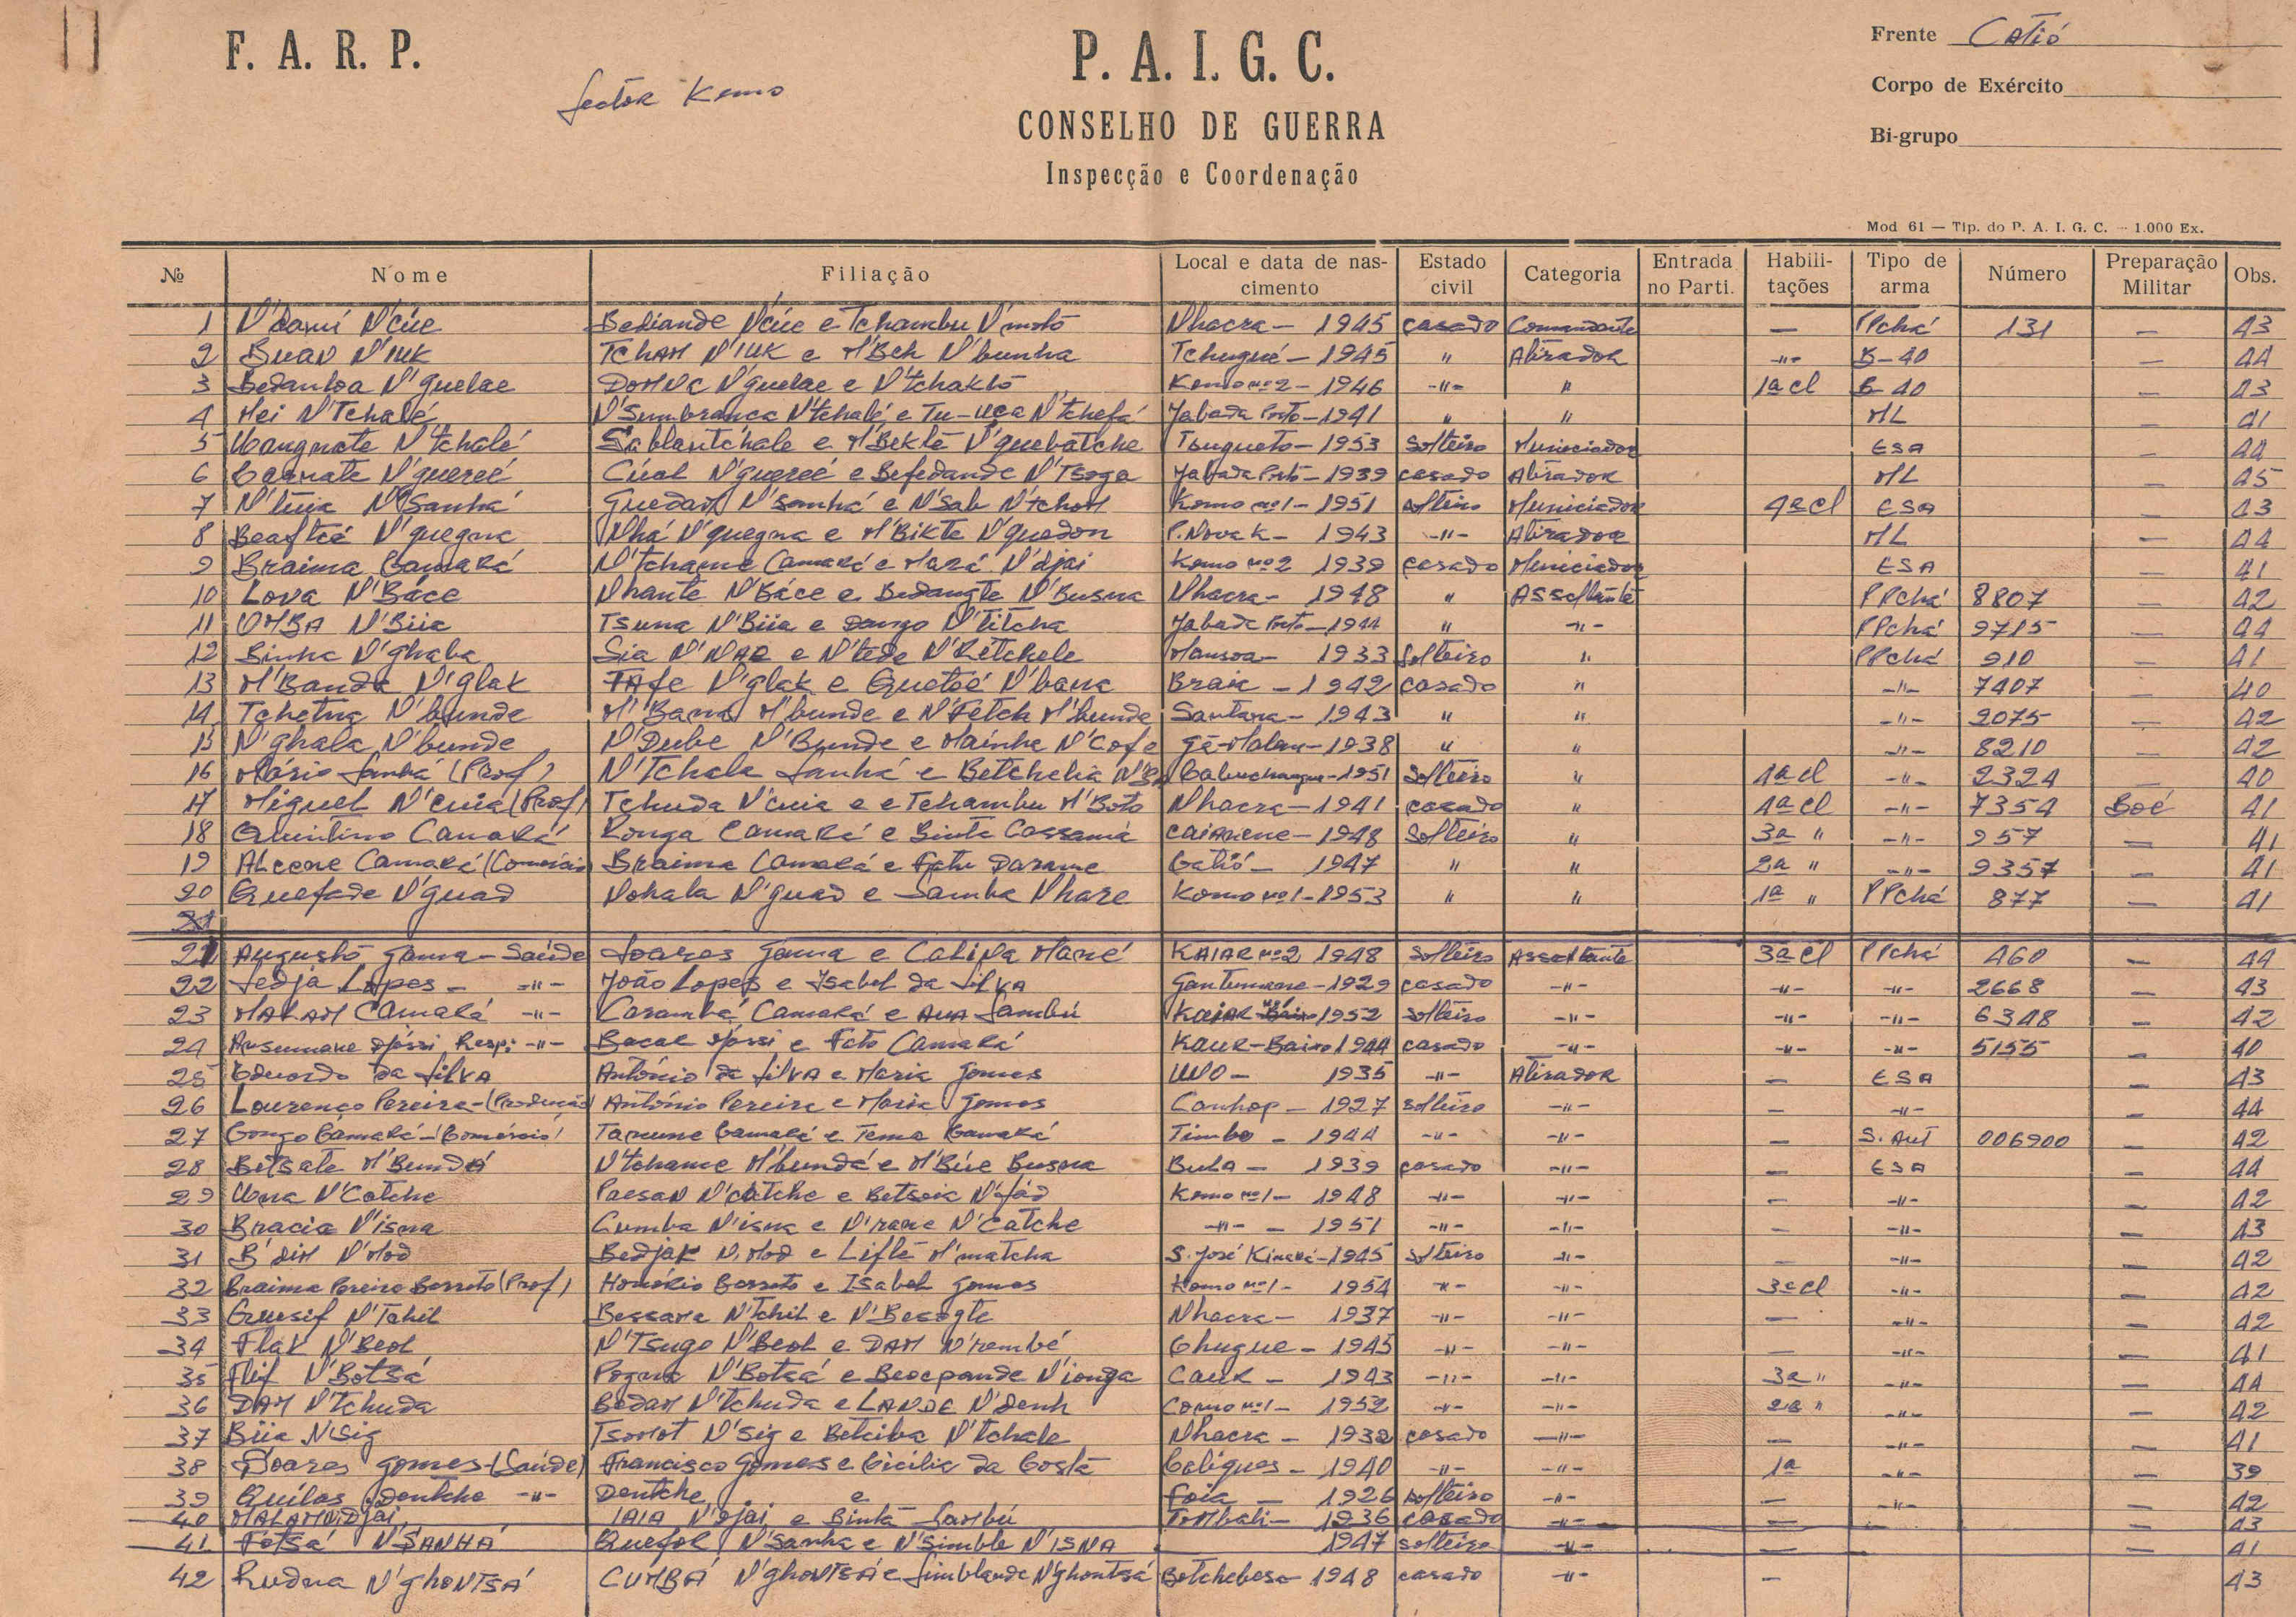 F. A. R. P.
Sector Komo
P. A. I. G. C.
CONSELHO DE GUERRA
Inspecção e Coordenação
Frente Catió
Corpo de Exército
Bi-grupo
Mod 61 — Tip. do P. A. I. G. C. — 1.000 Ex.
№ Nome Filiação Local e data de nascimento Estado civil Categoria Entrada no Parti. Habilitações Tipo de arma Número Preparação Militar Obs.
1 N'dami N'cúe Bediande N'cúe e Tchambu N'motó Nhacra - 1945 casado Comandante — PPchá 131 — 43
2 Buad N'iuk Tcham N'iuk e M'Beh N'bunha Tchugué - 1945 " Atirador -"- B-40 — 44
3 Bedanhoa N'guelae Domna N'guelae e N'tchaktó Komo nº2 - 1946 -"- " 1ª cl B-40 — 43
4 Mei N'Tchalé N'Sumbranca N'tchalé e Tu-uça N'tchefá Jabada Porto - 1941 " " ML — 41
5 Uangnate N'tchalé Sablantchale e M'Bekté N'quebatche Tsuqueto - 1953 Solteiro Municiador ESA — 44
6 Carnate N'quereé Cúal N'quereé e Befedande N'Tsoga Jabada Porto - 1939 casado Atirador ML — 45
7 N'túia N'Sanhá Guedam N'sanhá e N'Sab N'tchom Komo nº1 - 1951 solteiro Municiador 4ª cl ESA — 43
8 Beaftcé N'quegna Nhá N'quegna e M'Bikte N'quedon P. Nova K - 1943 -"- Atirador ML — 44
9 Braima Camará N'tchame Camará e Mará N'djai Komo nº2 1939 casado Municiador ESA — 41
10 Lova N'Báce Nhante N'Báce e Bedangte N'Busna Nhacra - 1948 " Assaltante PPchá 8807 — 42
11 OMBA N'Biia Tsuna N'Biia e Dango N'titcha Jabada Porto - 1944 " -"- PPchá 9715 — 44
12 Binha N'ghaba Sia N'NAR e N'téde N'Retchele Mansoa - 1933 Solteiro " PPchá 910 — 41
13 M'Banda N'glak TAfe N'glak e Quetoé N'bana Braia - 1942 casado " -"- 7407 — 40
14 Tchetna N'bunde M'Bana M'bunde e N'Fetch M'bunde Santana - 1943 " " -"- 2075 — 42
15 N'ghala N'bunde N'Dube N'Bunde e Mainha N'Cofe Gã-Malam - 1938 " " -"- 8210 — 42
16 Mário Sanhá (Prof) N'Tchala Sanhá e Betchelia - 1951 Solteiro " 1ª cl -"- 2324 — 40
17 Miguel N'cuia (Prof) Tchuda N'cuia e e Tchambu M'Boto Nhacra - 1941 casado " 4ª cl -"- 7354 Boé 41
18 Quintino Camará Ronga Camará e Binta Cassamá Caianene - 1948 Solteiro " 3ª " -"- 957 — 41
19 Alccene Camará (Comércio) Braima Camará e Fatu Darame Catió - 1947 " " 2ª " -"- 9357 — 41
20 Quefade N'guad Nohala N'guad e Samba Nhare Komo nº1 - 1953 " " 1ª " PPchá 877 — 41
21 Augusto Gama - Saúde Soares Gama e Calida Mané KAIAR nº2 1948 Solteiro Assaltante 3ª cl PPchá 460 — 44
22 Sedja Lopes - -"- João Lopes e Isabel da Silva Gantumane - 1929 casado -"- -"- -"- 2668 — 43
23 MALAM Camará -"- Carambá Camará e Aua Sambú Kaiar nº1 1952 Solteiro -"- -"- -"- 6348 — 42
24 Ansumane Djassi Resp: -"- Bacar Djassi e Fato Camará Kaur-Baixo 1944 casado -"- -"- -"- 5155 — 40
25 Eduardo da Silva António da Silva e Maria Gomes UNO - 1935 -"- Atirador — ESA — 43
26 Lourenço Pereira - (Produção) António Pereira e Maria Gomes Canhop - 1927 solteiro -"- — -"- — 44
27 Gongo Camará - (Comércio) Tanune Camará e Tema Camará Timbo - 1944 -"- -"- — S. Aut 006900 — 42
28 Betsate M'Bundá N'tchame M'bundá e M'Búe Busna Bula - 1939 casado -"- — ESA — 44
29 Uana N'Catche Paesad N'catche e Betsoia N'fád Komo nº1 - 1948 -"- -"- — -"- — 42
30 Bracia N'isna Cumba N'isna e N'rane N'Catche -"- - 1951 -"- -"- — -"- — 43
31 B'dim N'Mod Bedjak N.Mod e Lifté M'matcha S. José Kinará - 1945 solteiro -"- — -"- — 42
32 Braima Pereira Barreto (Prof) Honório Barreto e Isabel Gomes Komo nº1 - 1954 -"- -"- 3ª cl -"- — 42
33 Quesif N'Tchil Bessara N'tchil e N'Besogte Nhacra - 1937 -"- -"- — -"- — 42
34 Flak N'Beol N'Tsugo N'Beol e DAM N'rembé Chugue - 1945 -"- -"- — -"- — 41
35 Flif N'Botsá Pogana N'Botsá e Beoepande N'ionga Caur - 1943 -"- -"- 3ª " -"- — 44
36 DAM N'tchuda Bedam N'tchuda e LANDE N'denh Como nº1 - 1952 -"- -"- 2ª " -"- — 42
37 Biia N'Sig Tsomot N'sig e Betciba N'tchale Nhacra - 1932 casado -"- — -"- — 41
38 Soares Gomes - (Saúde) Francisco Gomes e Cicilia da Costa Caliques - 1940 -"- -"- 1ª -"- — 39
39 Quilas Dentche -"- Dentche e Foia - 1926 solteiro -"- — -"- — 42
40 MALAM N'Djai IAIA N'Djai e Binta Sambú Tombali - 1936 casado -"- — — 43
41 Fotsá N'SANHÁ Quefol N'Sanha e N'Simble N'ISNA 1947 solteiro -"- — — 41
42 Rudna N'ghoNTSÁ CUMBÁ N'ghoNTSÁ e Simblande N'ghontsá Botchebesa 1948 casado -"- — 43